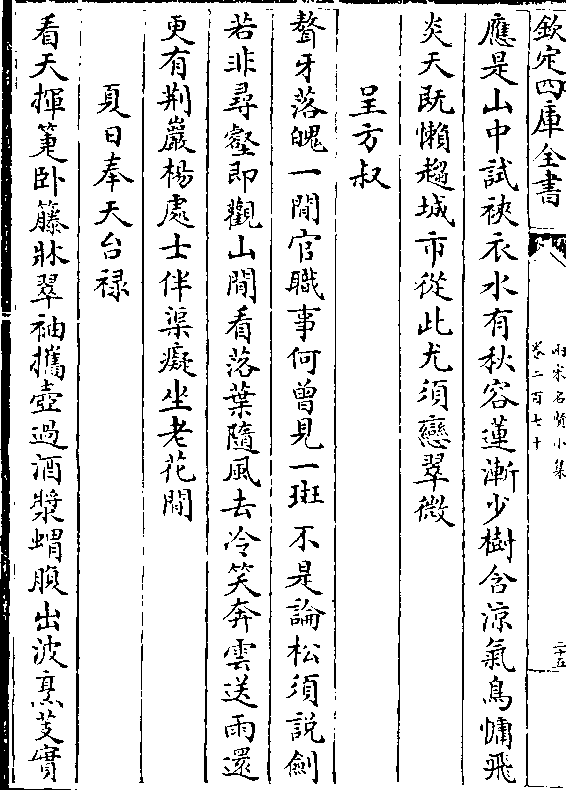 欽定四庫全書
兩宋名賢小集
卷二百七十
二十五
應是山中試裌衣水有秋容蓮漸少樹含涼氣鳥慵飛
炎天既懶趨城市從此尤須戀翠微
呈方叔
聱牙落魄一閒官職事何曾見一斑不是論松須説劍
若非尋壑即觀山閒看落葉隨風去冷笑奔雲送雨還
更有荆巖楊處士伴渠癡坐老花間
夏日奉天台禄
看天揮箑卧籐牀翠袖攜壺過酒漿蝟腹出波烹芡實